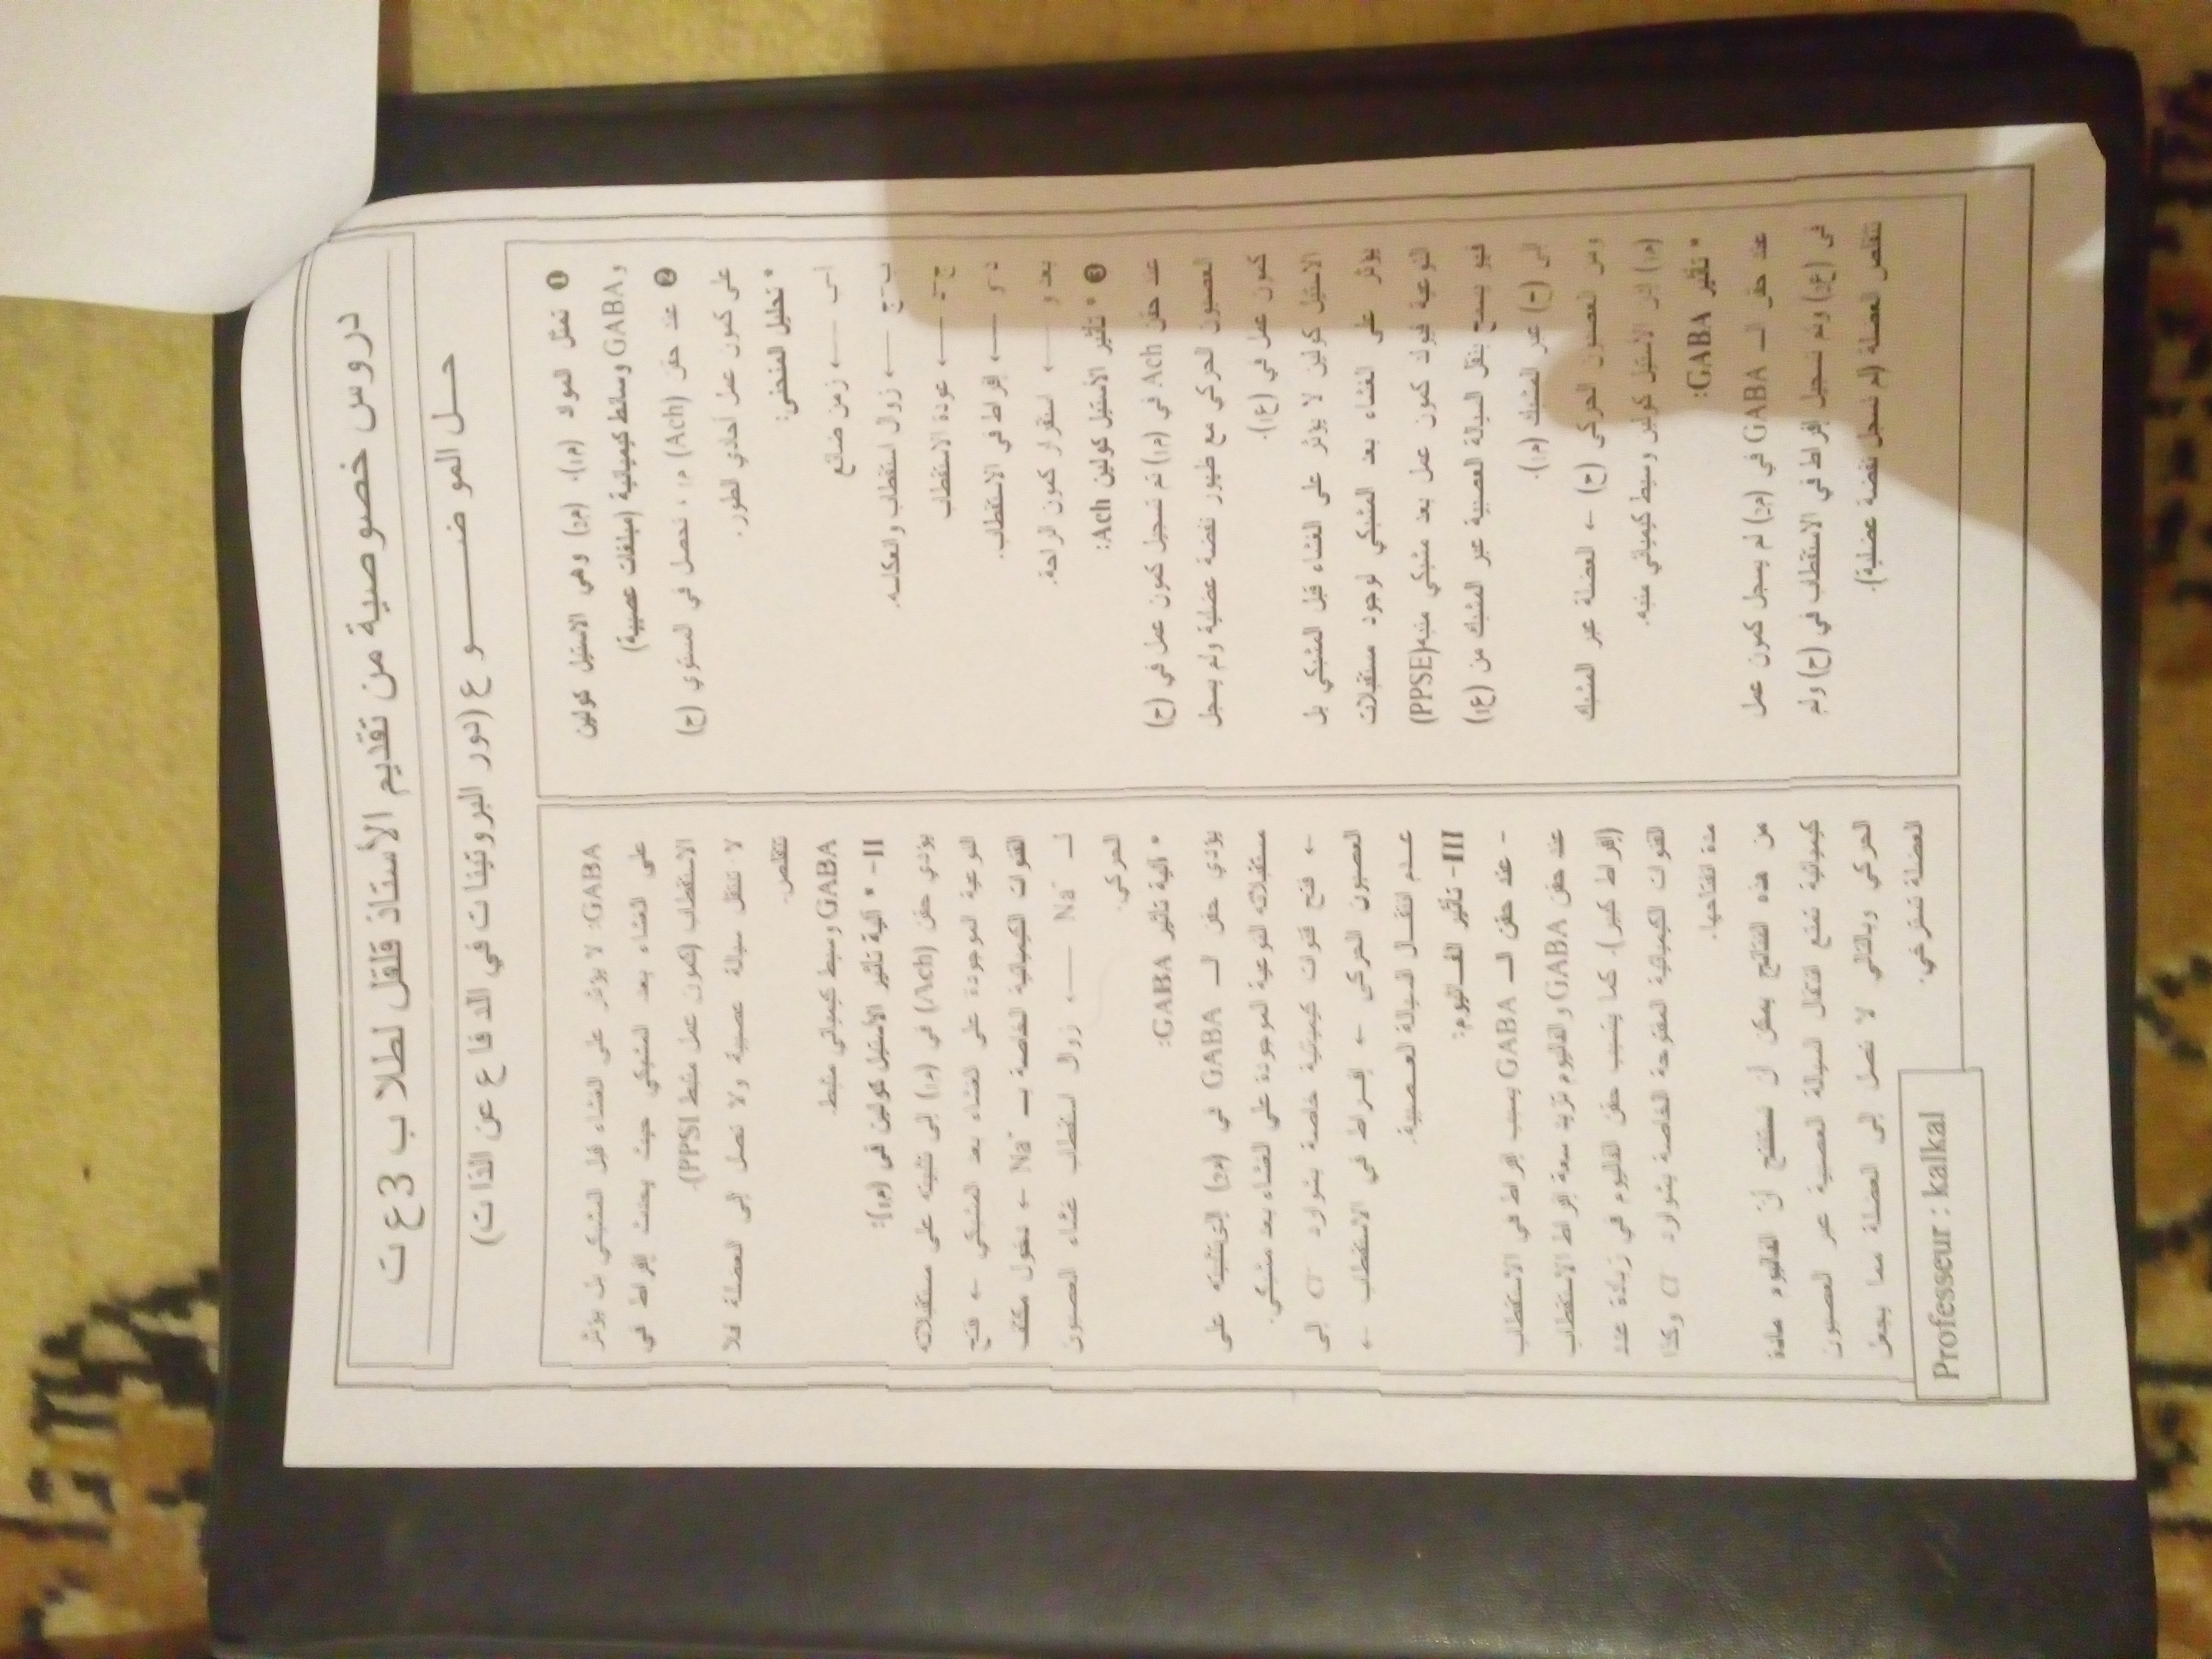 دروس خصوصية من تقديم الأستاذ قلقل لطلاب 3 ع ت
حــل الموضـــــــوع (دور البروتينات في الدفاع عن الذات)
❶ تمثل المواد (م1)، (م2) وهي الاستيل كولين
و GABA وسائط كيميائية (مبلغات عصبية)
❷ عند حقن (Ach) م1، نحصل في المستوي (ح)
على كمون عمل أحادي الطور.
• تحليل المنحنى:
أ-ب ⟶ زمن ضائع
ب-ج ⟶ زوال استقطاب وانعكاسه.
ج-د ⟶ عودة الاستقطاب
د-و ⟶ إفراط في الاستقطاب.
بعد و ⟶ استقرار كمون الراحة.
❸ • تأثير الأستيل كولين Ach:
عند حقن Ach في (م1) تم تسجيل كمون عمل في (ح)
العصبون الحركي مع ظهور نفضة عضلية ولم يسجل
كمون عمل في (ع1).
الاستيل كولين لا يؤثر على الغشاء قبل المشبكي بل
يؤثر على الغشاء بعد المشبكي لوجود مستقبلات
النوعية فيولد كمون عمل بعد مشبكي منبه(PPSE)
فهو يسمح بنقل السيالة العصبية عبر المشبك من (ع1)
إلى (ح) عبر المشبك (م1).
ومن العصبون الحركي (ح) ← العضلة عبر المشبك
(م1) إذن الاستيل كولين وسيط كيميائي منبه.
• تأثير GABA:
عند حقن الـ GABA في (م2) لم يسجل كمون عمل
في (ع2) وتم تسجيل إفراط في الاستقطاب في (ح) ولم
تتقلص العضلة (لم تسجل نفضة عضلية).
GABA: لا يؤثر على الغشاء قبل المشبكي بل يؤثر
على الغشاء بعد المشبكي حيث يحدث إفراط في
الاستقطاب (كمون عمل مثبط PPSI).
لا تنتقل سيالة عصبية ولا تصل إلى العضلة فلا
تتقلص.
GABA وسيط كيميائي مثبط.
II- • آلية تأثير الأستيل كولين في (م1):
يؤدي حقن (Ach) في (م1) إلى تثبيته على مستقبلاته
النوعية الموجودة على الغشاء بعد المشبكي ← فتح
القنوات الكيميائية الخاصة بـ Na⁺ ← دخول مكثف
لـ Na⁺ ⟶ زوال استقطاب غشاء العصبون
الحركي.
• آلية تأثير GABA:
يؤدي حقن الـ GABA في (م2) إلى تثبيته على
مستقبلاته النوعية الموجودة على الغشاء بعد مشبكي.
← فتح قنوات كيميائية خاصة بشوارد Cl⁻ إلى
العصبون الحركي ← إفـراط في الاستقطاب ←
عـدم انتقـال السيالة العـصبية.
III- تأثير الفـاليوم:
- عند حقن الـ GABA يسبب إفراط في الاستقطاب
عند حقن GABA و الفاليوم تزيد سعة إفراط الاستقطاب
(إفراط كبير)، كما يتسبب حقن الفاليوم في زيادة عدد
القنوات الكيميائية المفتوحة الخاصة بشوارد Cl⁻ وكذا
مدة انفتاحها.
من هذه النتائج يمكن أن نستنتج أن الفاليوم مادة
كيميائية تمنع انتقال السيالة العصبية عبر العصبون
الحركي وبالتالي لا تصل إلى العضلة مما يجعل
العضلة تسترخي.
Professeur : kalkal